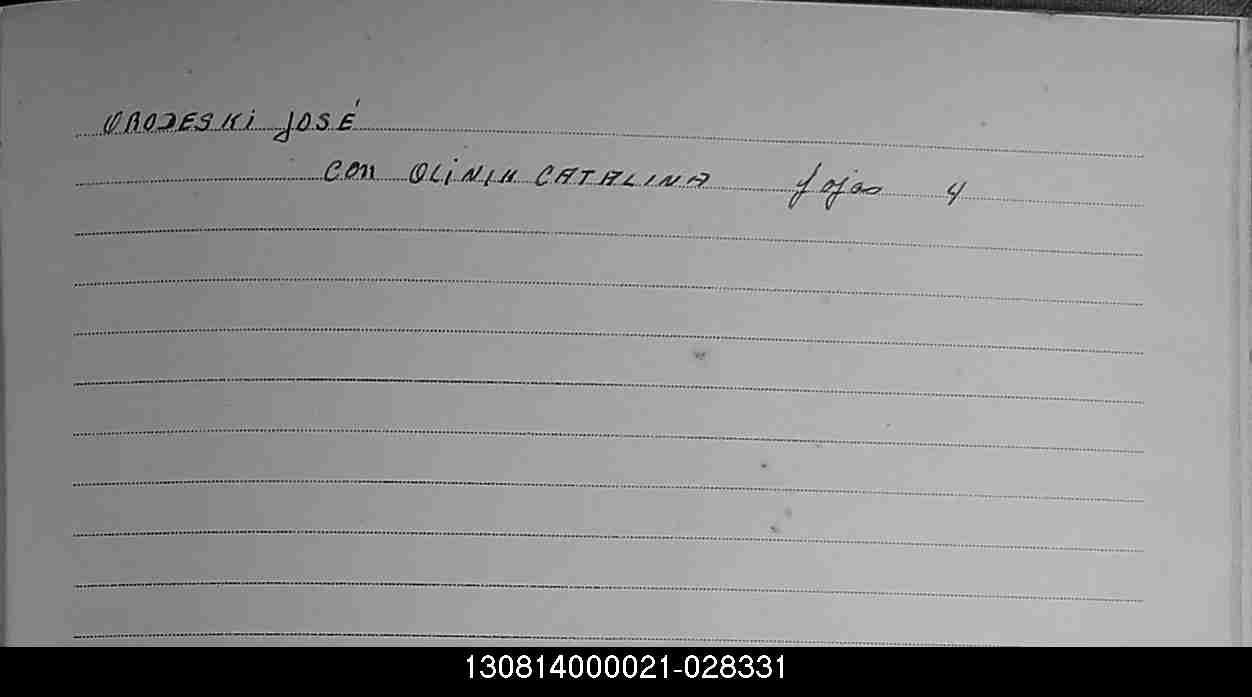 OROJESKI JOSÉ
con OLINIK CATALINA fojas 4
130814000021-028331